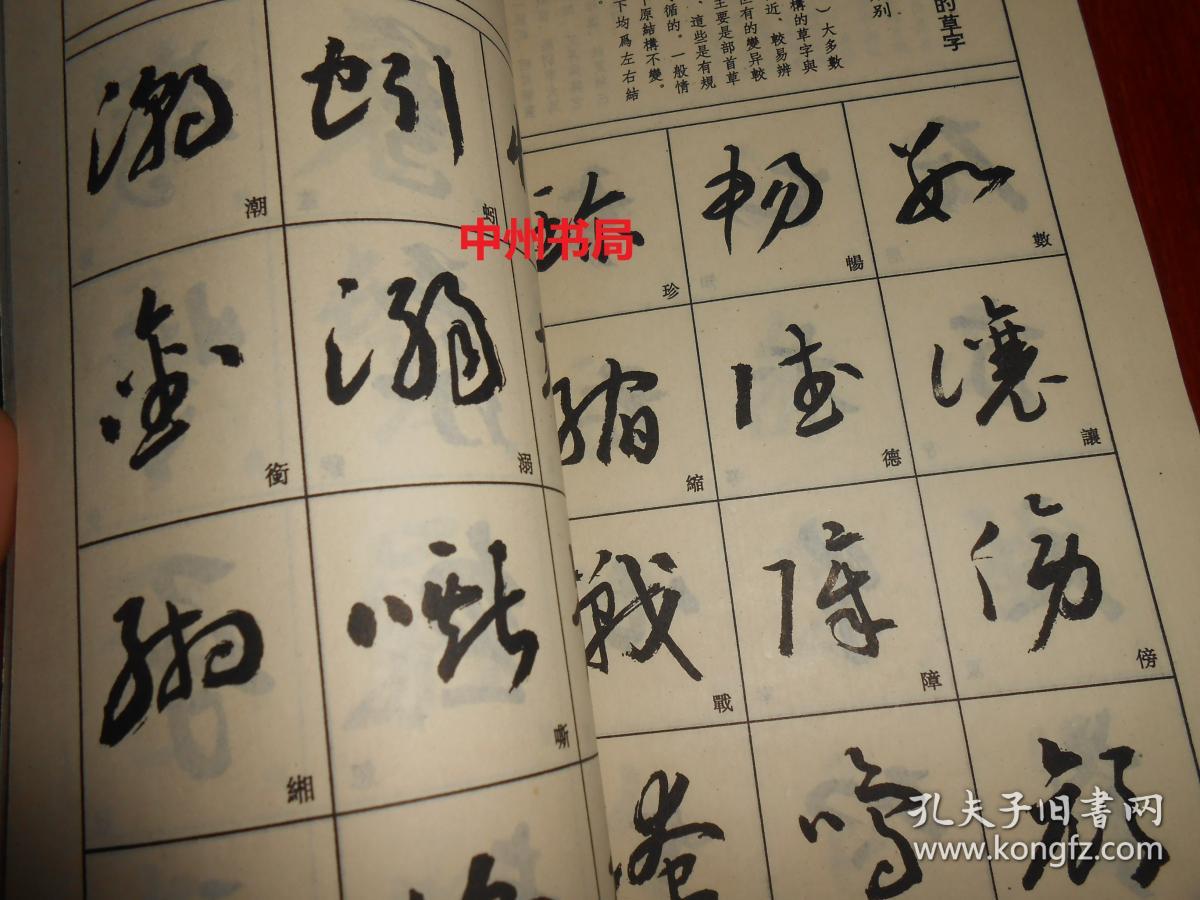 的草字
别
）大多數
構的草字與
近，較易辨
但有的變异較
主要是部首草
，這些是有規
循的。一般情
下原結構不變。
下均爲左右結
數
暢
珍
讓
德
縮
傍
障
戰
蚓
潮
溺
衡
嘶
緗
中州书局
孔夫子旧书网
www.kongfz.com